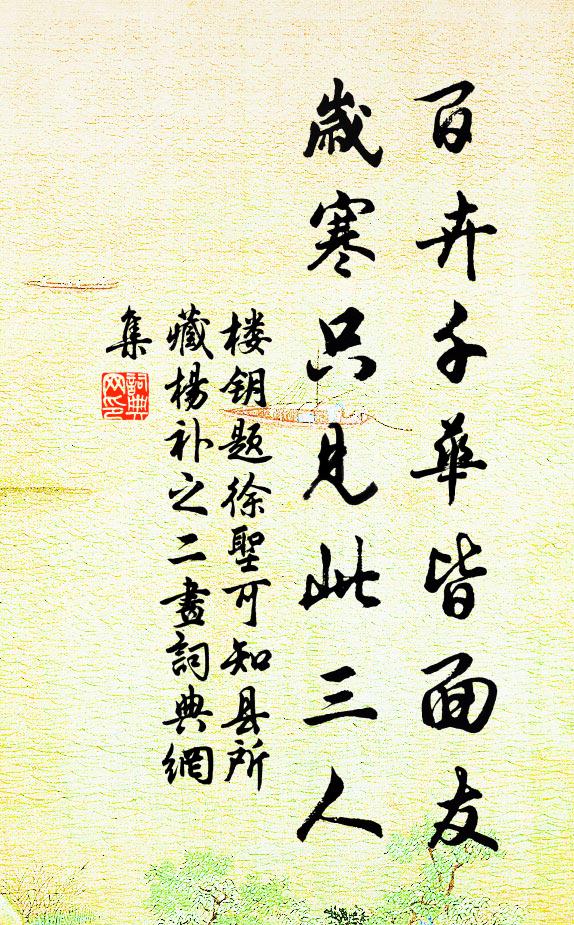 百卉千華皆面友
歲寒只見此三人
楼钥题徐聖可知县所
藏楊补之二畫詞典網
集
詞典
网印